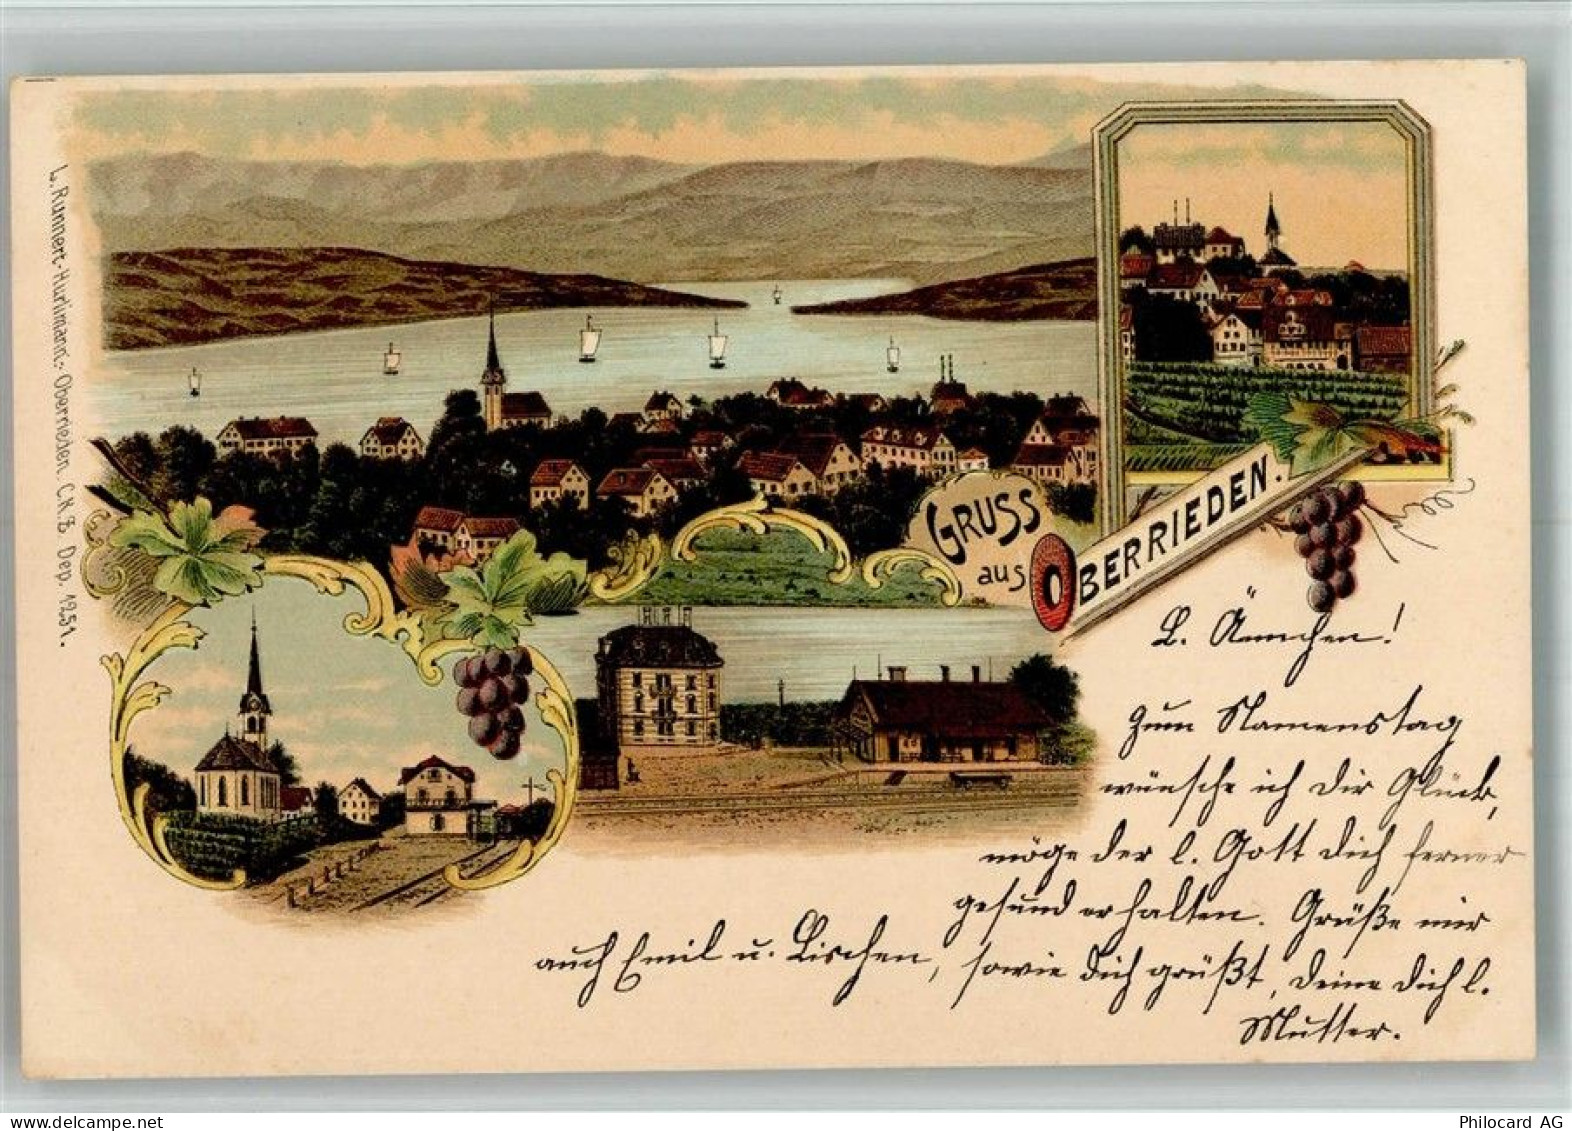 L. Runnert-Hurlimann:- Oberrieden C.K.B. Dep. 1251.
GRUSS
aus
OBERRIEDEN.
L. Ännchen!
Zum Namenstag
wünsche ich Dir Glück,
möge der l. Gott Dich ferner
gesund erhalten. Grüße mir
auch Emil u. Lischen, sowie Dich grüßt, Deine Dich l.
Mutter.
www.delcampe.net
Philocard AG